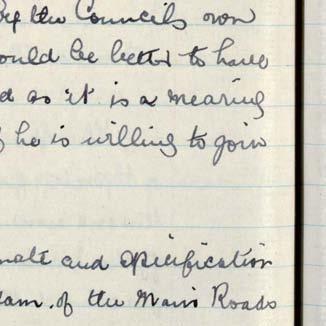 By the Councils own
ould be better to have
d as it is a mearing
he is willing to join
mate and specification
dam. of the Main Roads